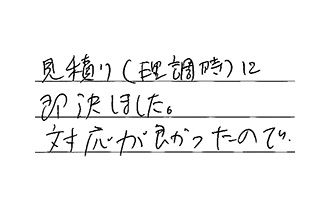 見積り(理調時)に
即決しました。
対応が良かったので、